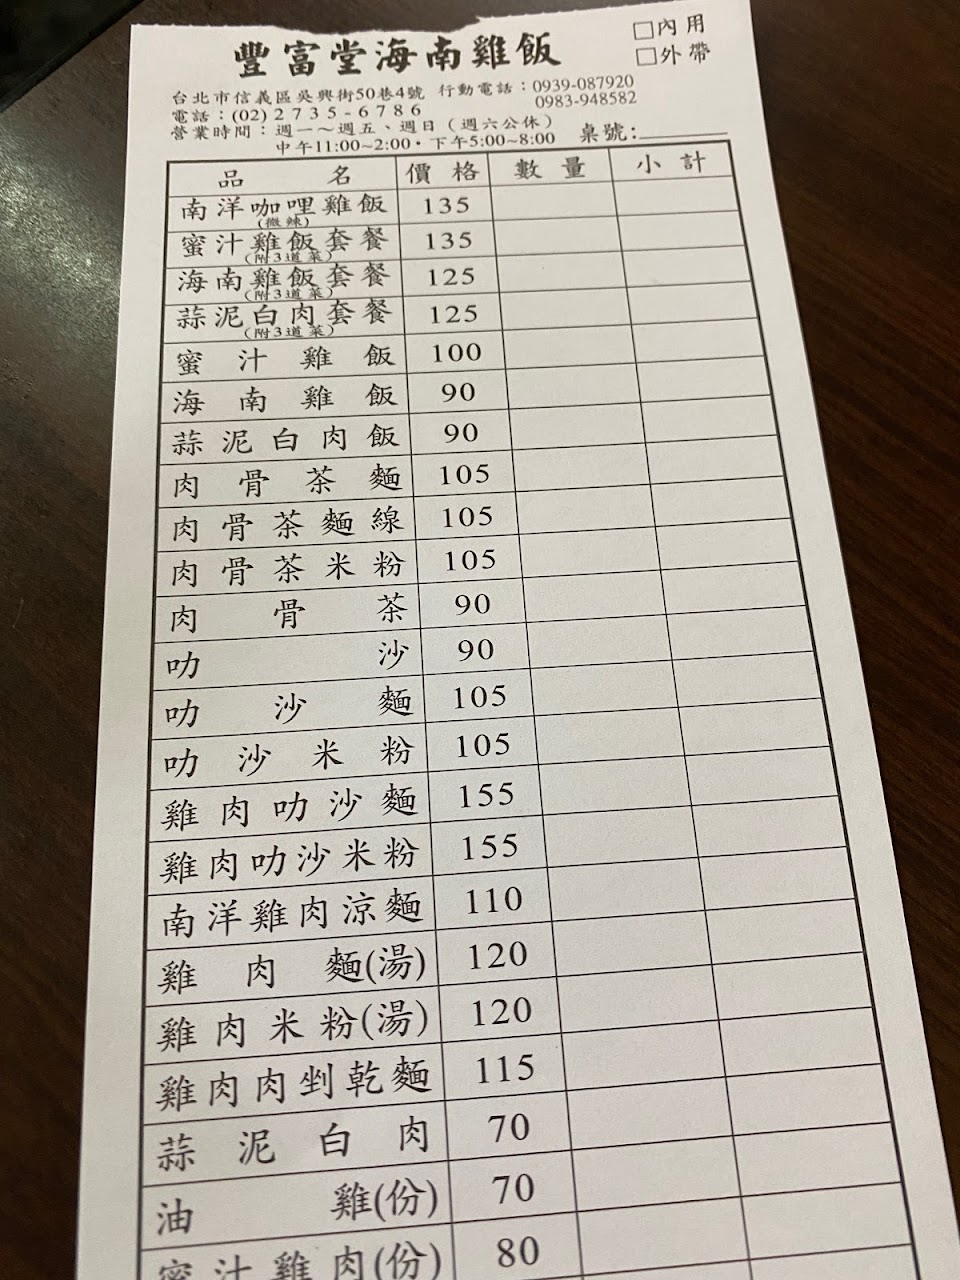 豐富堂海南雞飯
□內用
□外帶
台北市信義區吳興街50巷4號 行動電話：0939-087920
電話：(02)2735-6786 0983-948582
營業時間：週一～週五、週日（週六公休）
中午11:00~2:00・下午5:00~8:00 桌號:
品名 價格 數量 小計
南洋咖哩雞飯 135
(微辣)
蜜汁雞飯套餐 135
(附3道菜)
海南雞飯套餐 125
(附3道菜)
蒜泥白肉套餐 125
(附3道菜)
蜜汁雞飯 100
海南雞飯 90
蒜泥白肉飯 90
肉骨茶麵 105
肉骨茶麵線 105
肉骨茶米粉 105
肉骨茶 90
叻沙 90
叻沙麵 105
叻沙米粉 105
雞肉叻沙麵 155
雞肉叻沙米粉 155
南洋雞肉涼麵 110
雞肉麵(湯) 120
雞肉米粉(湯) 120
雞肉肉剉乾麵 115
蒜泥白肉 70
油雞(份) 70
蜜汁雞肉(份) 80